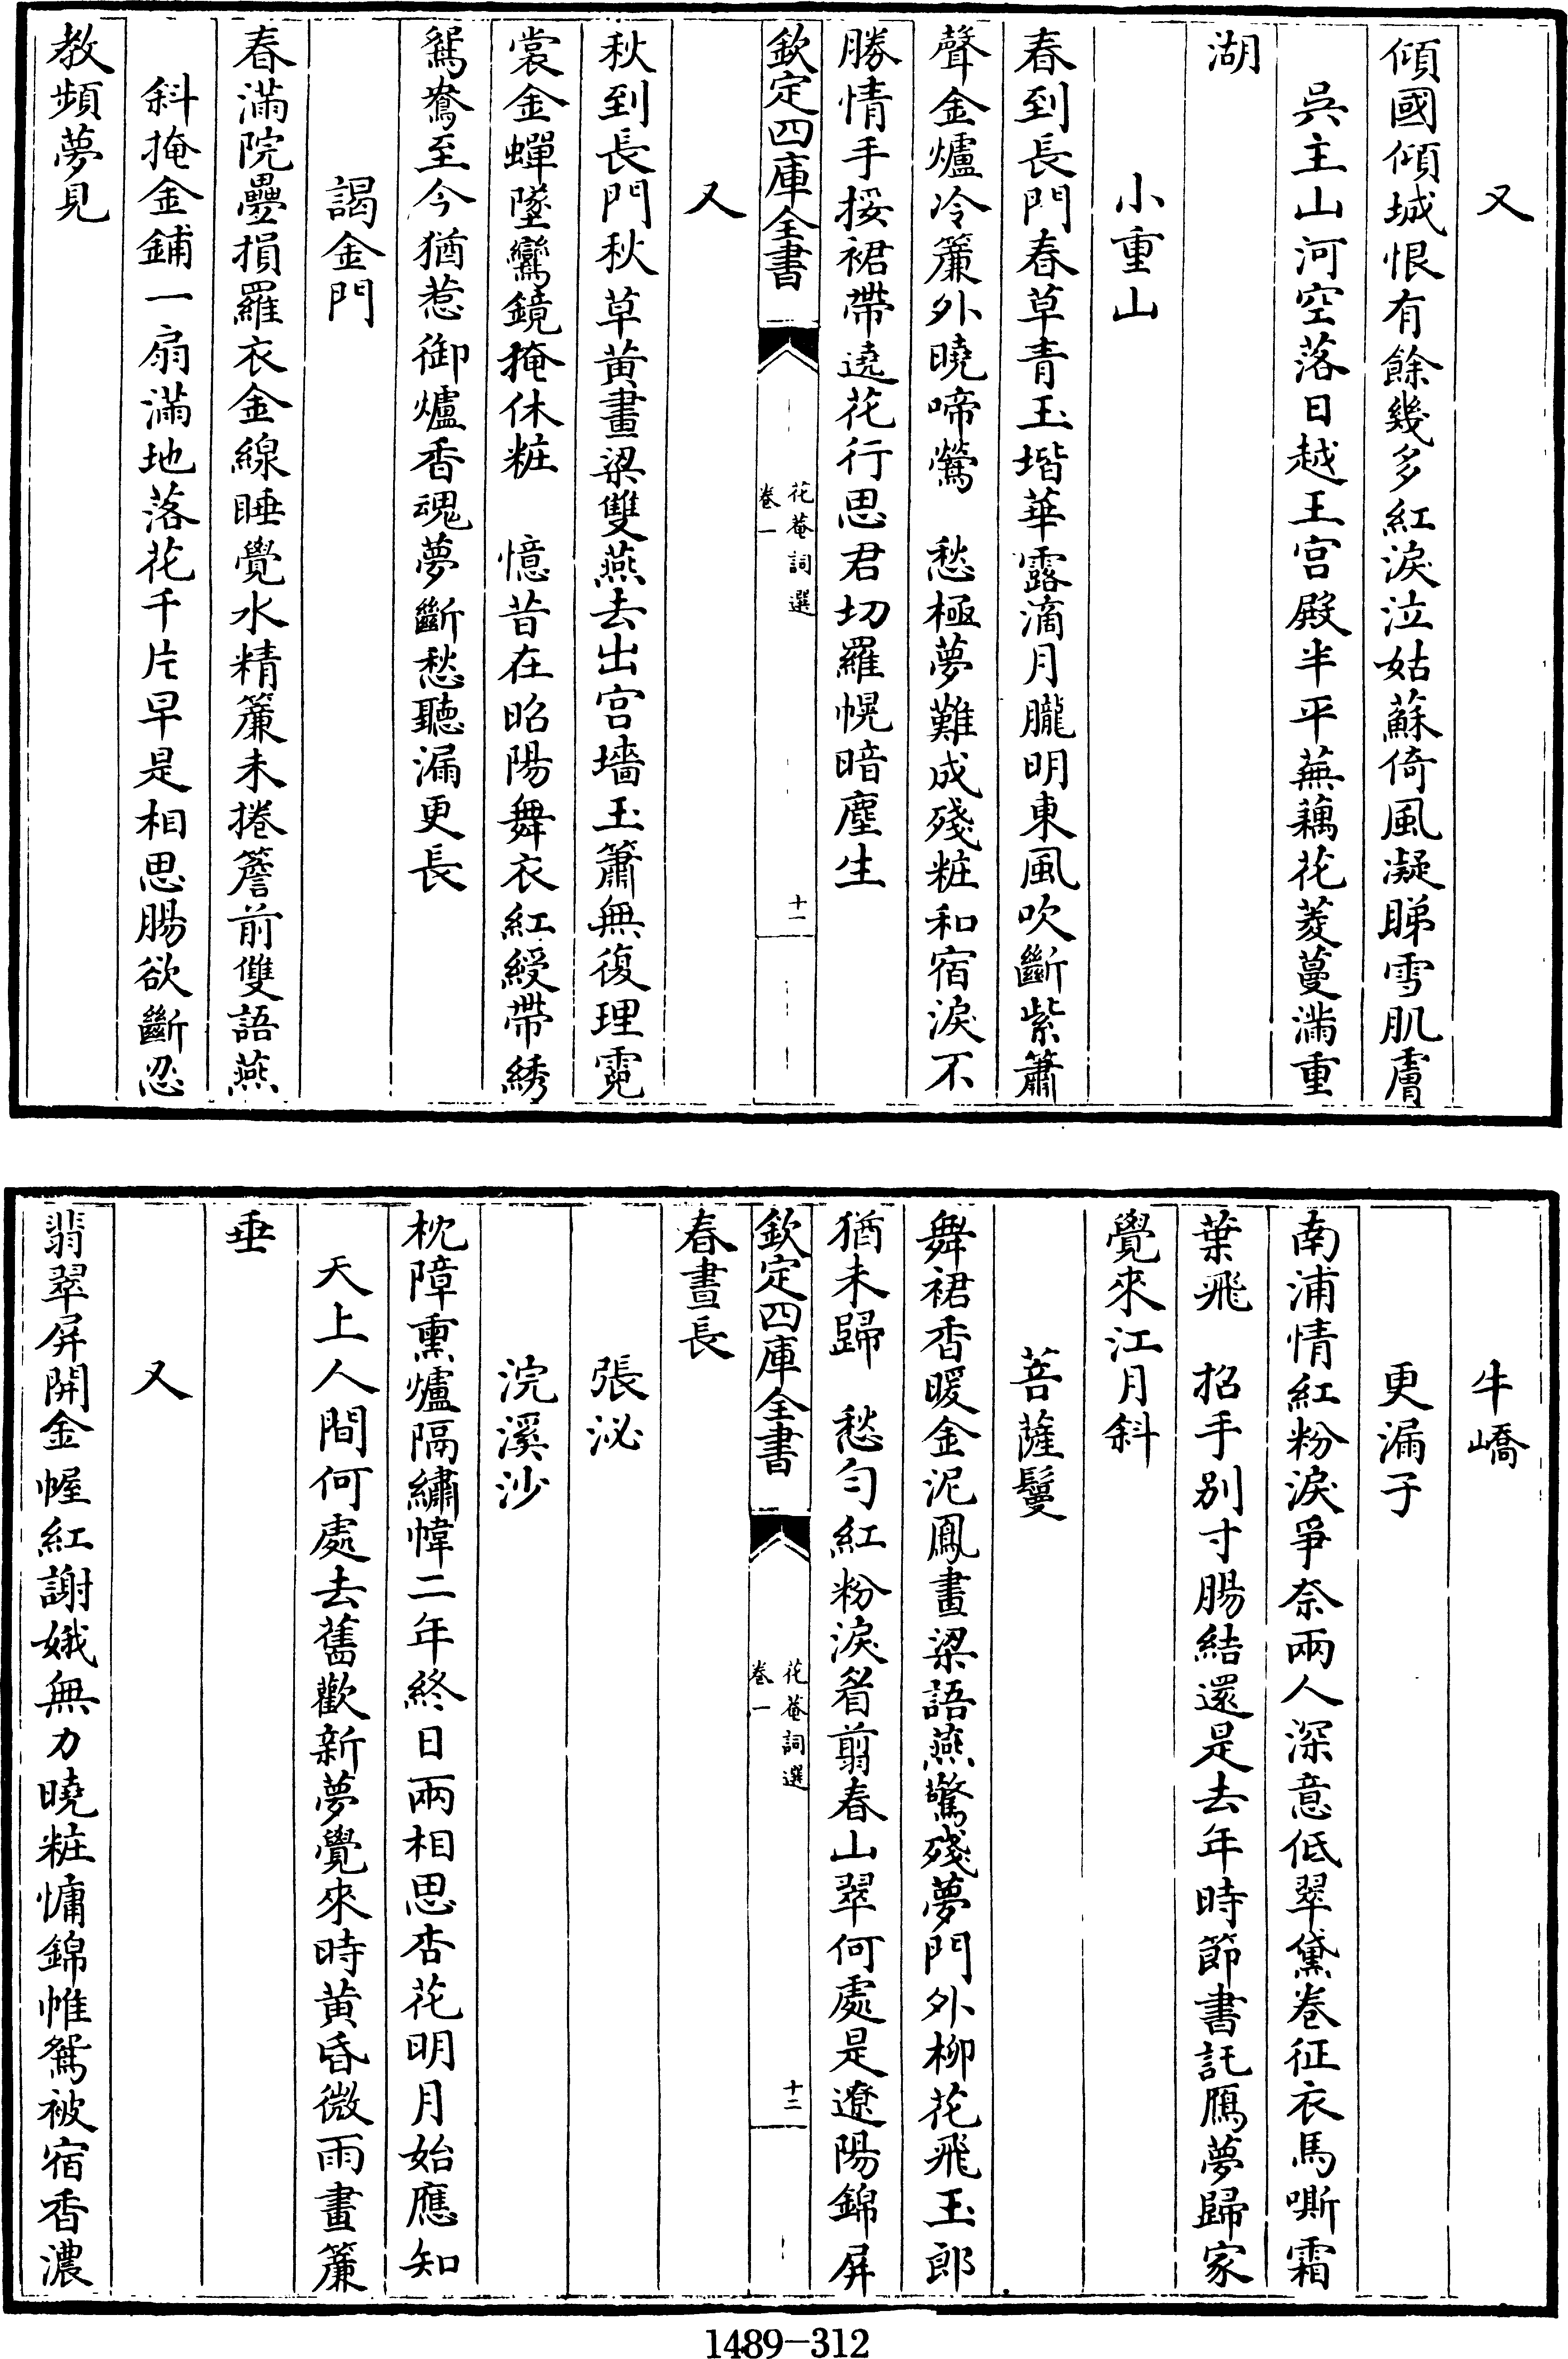 又
傾國傾城恨有餘幾多紅淚泣姑蘇倚風凝睇雪肌膚
吳主山河空落日越王宮殿半平蕪藕花菱蔓滿重
湖
小重山
春到長門春草青玉堦華露滴月朧明東風吹斷紫簫
聲金爐冷簾外曉啼鶯　愁極夢難成殘粧和宿淚不
勝情手挼裙帶遶花行思君切羅幌暗塵生
欽定四庫全書
花菴詞選
卷一
十一
又
秋到長門秋草黃畫梁雙燕去出宮墻玉簫無復理霓
裳金蟬墜鸞鏡掩休粧　憶昔在昭陽舞衣紅綬帶綉
鴛鴦至今猶惹御爐香魂夢斷愁聽漏更長
謁金門
春滿院疊損羅衣金線睡覺水精簾未捲簷前雙語燕
斜掩金鋪一扇滿地落花千片早是相思腸欲斷忍
教頻夢見
牛嶠
更漏子
南浦情紅粉淚爭奈兩人深意低翠黛卷征衣馬嘶霜
葉飛　招手别寸腸結還是去年時節書託鴈夢歸家
覺來江月斜
菩薩鬘
舞裙香暖金泥鳳畫梁語燕驚殘夢門外柳花飛玉郎
猶未歸　愁勻紅粉淚眉剪春山翠何處是遼陽錦屏
欽定四庫全書
花菴詞選
卷一
十二
春晝長
張泌
浣溪沙
枕障熏爐隔繡幃二年終日兩相思杏花明月始應知
天上人間何處去舊歡新夢覺來時黃昏微雨畫簾
垂
又
翡翠屏開金幄紅謝娥無力曉粧慵錦帷鴛被宿香濃
1489-312